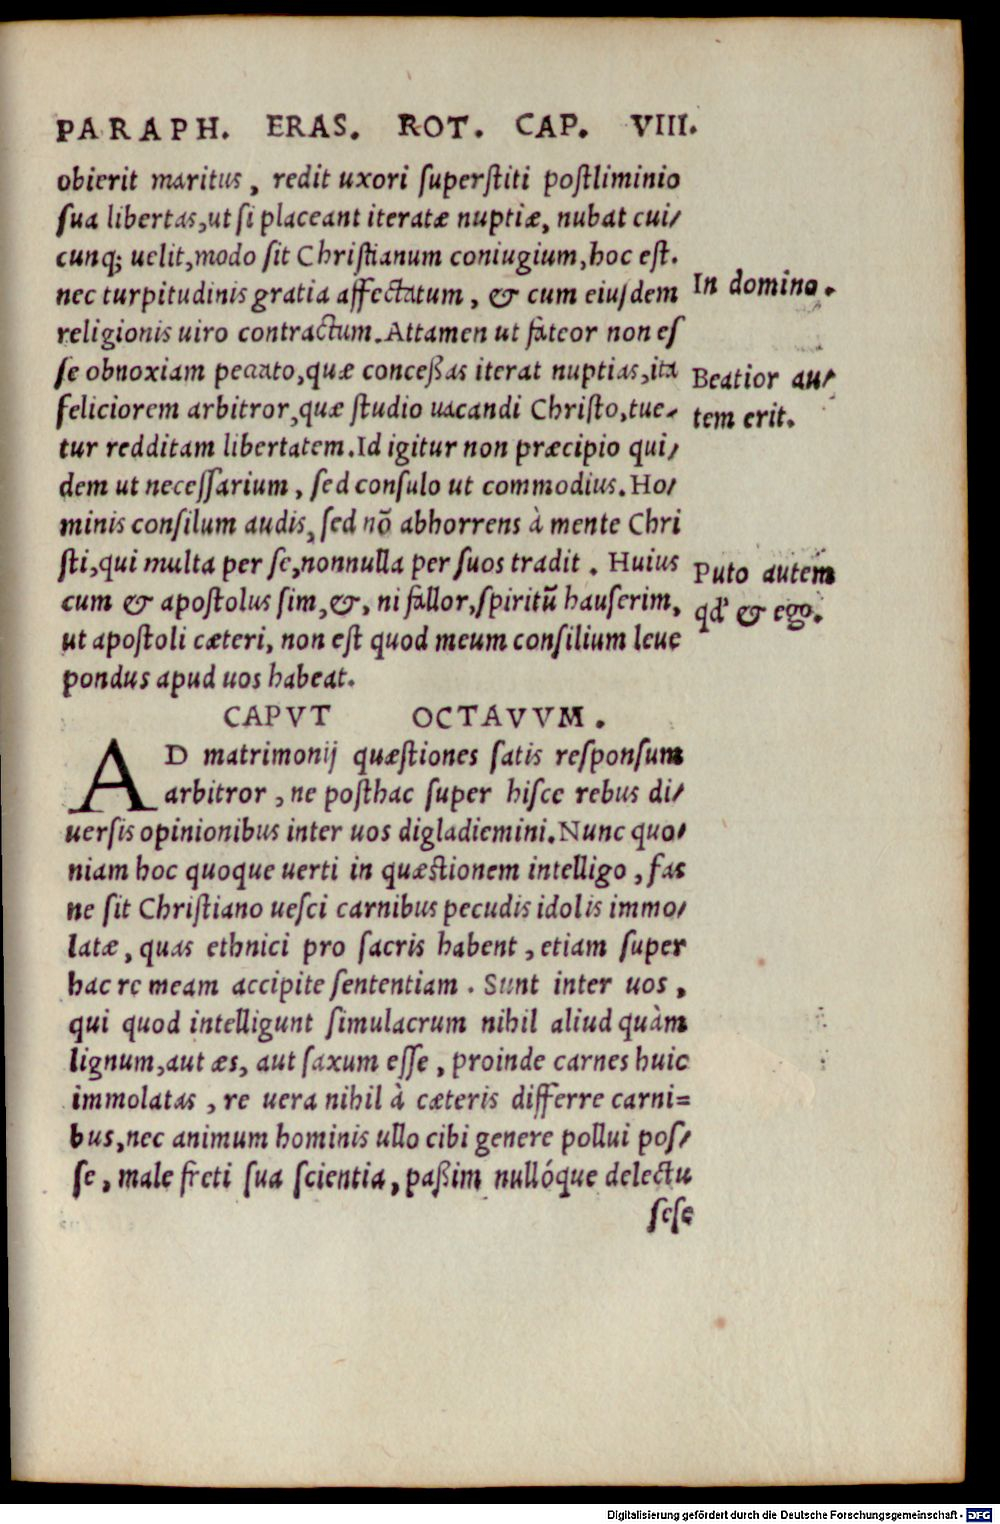 PARAPH. ERAS. ROT. CAP. VIII.
obierit maritus, redit uxori ſuperſtiti poſtliminio
ſua libertas, ut ſi placeant iteratæ nuptiæ, nubat cui⸗
cunq; uelit, modo ſit Chriſtianum coniugium, hoc eſt.
nec turpitudinis gratia affectatum, & cum eiuſdem
In domino.
religionis uiro contractum. Attamen ut fateor non eſ
ſe obnoxiam peccato, quæ conceßas iterat nuptias, ita
Beatior au⸗
feliciorem arbitror, quæ ſtudio uacandi Chriſto, tue⸗
tem erit.
tur redditam libertatem. Id igitur non præcipio qui⸗
dem ut neceſſarium, ſed conſulo ut commodius. Ho⸗
minis conſilum audis, ſed nõ abhorrens à mente Chri
ſti, qui multa per ſe, nonnulla per ſuos tradit. Huius
Puto autem
cum & apoſtolus ſim, &, ni fallor, ſpiritũ hauſerim,
qđ & ego.
ut apoſtoli cæteri, non eſt quod meum conſilium leue
pondus apud uos habeat.
CAPVT OCTAVVM.
AD matrimonij quæſtiones ſatis reſponſum
arbitror, ne poſthac ſuper hiſce rebus di⸗
uerſis opinionibus inter uos digladiemini. Nunc quo⸗
niam hoc quoque uerti in quæſtionem intelligo, fas
ne ſit Chriſtiano ueſci carnibus pecudis idolis immo⸗
latæ, quas ethnici pro ſacris habent, etiam ſuper
hac re meam accipite ſententiam. Sunt inter uos,
qui quod intelligunt ſimulacrum nihil aliud quàm
lignum, aut æs, aut ſaxum eſſe, proinde carnes huic
immolatas, re uera nihil à cæteris differre carni=
bus, nec animum hominis ullo cibi genere pollui poſ⸗
ſe, male freti ſua ſcientia, paßim nullóque delectu
ſeſe
Digitalisierung gefördert durch die Deutsche Forschungsgemeinschaft - DFG